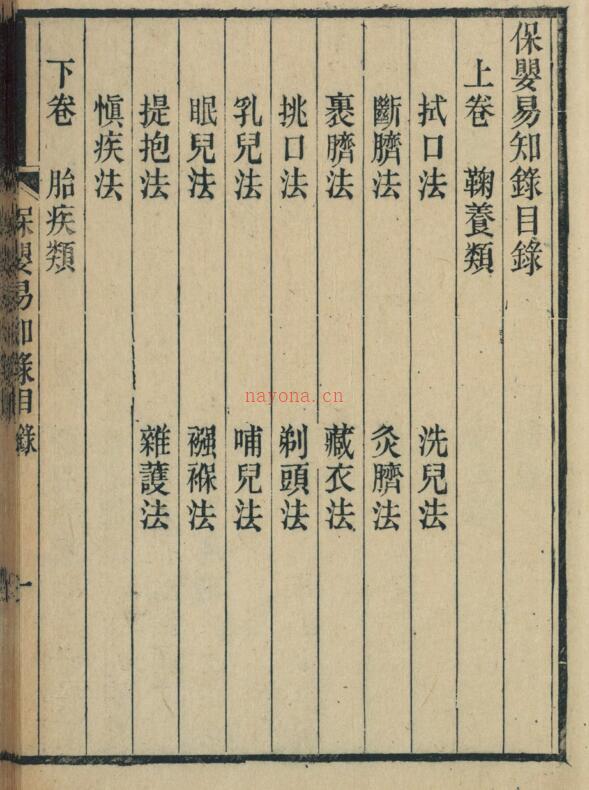 保嬰易知錄目錄
上卷 鞠養類
拭口法 洗兒法
斷臍法 灸臍法
裹臍法 藏衣法
挑口法 剃頭法
乳兒法 哺兒法
眠兒法 襁褓法
提抱法 雜護法
慎疾法
下卷 胎疾類
保嬰易知錄目錄
一
nayona.cn